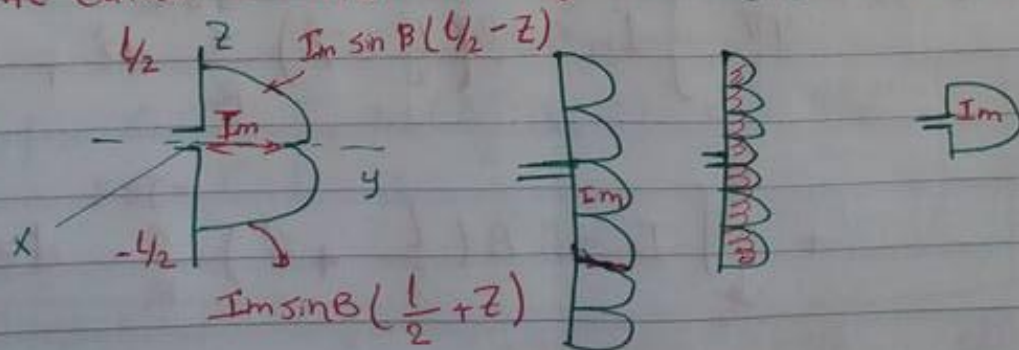 L/2 Z Im sin β(L/2 - Z)
Im
y
X
-L/2
Im sin β(1/2 + Z)
Im
Im